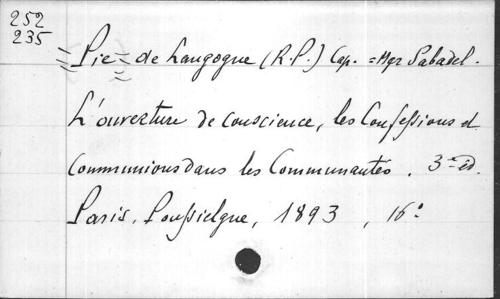 252
235
= Pie = de Langogne (R.P.) Cap. = Mgr Sabadel.
L'ouverture de conscience, les Confessions et
Communions dans les Communautés. 3e éd.
Paris, Poussielgue, 1893, 16°